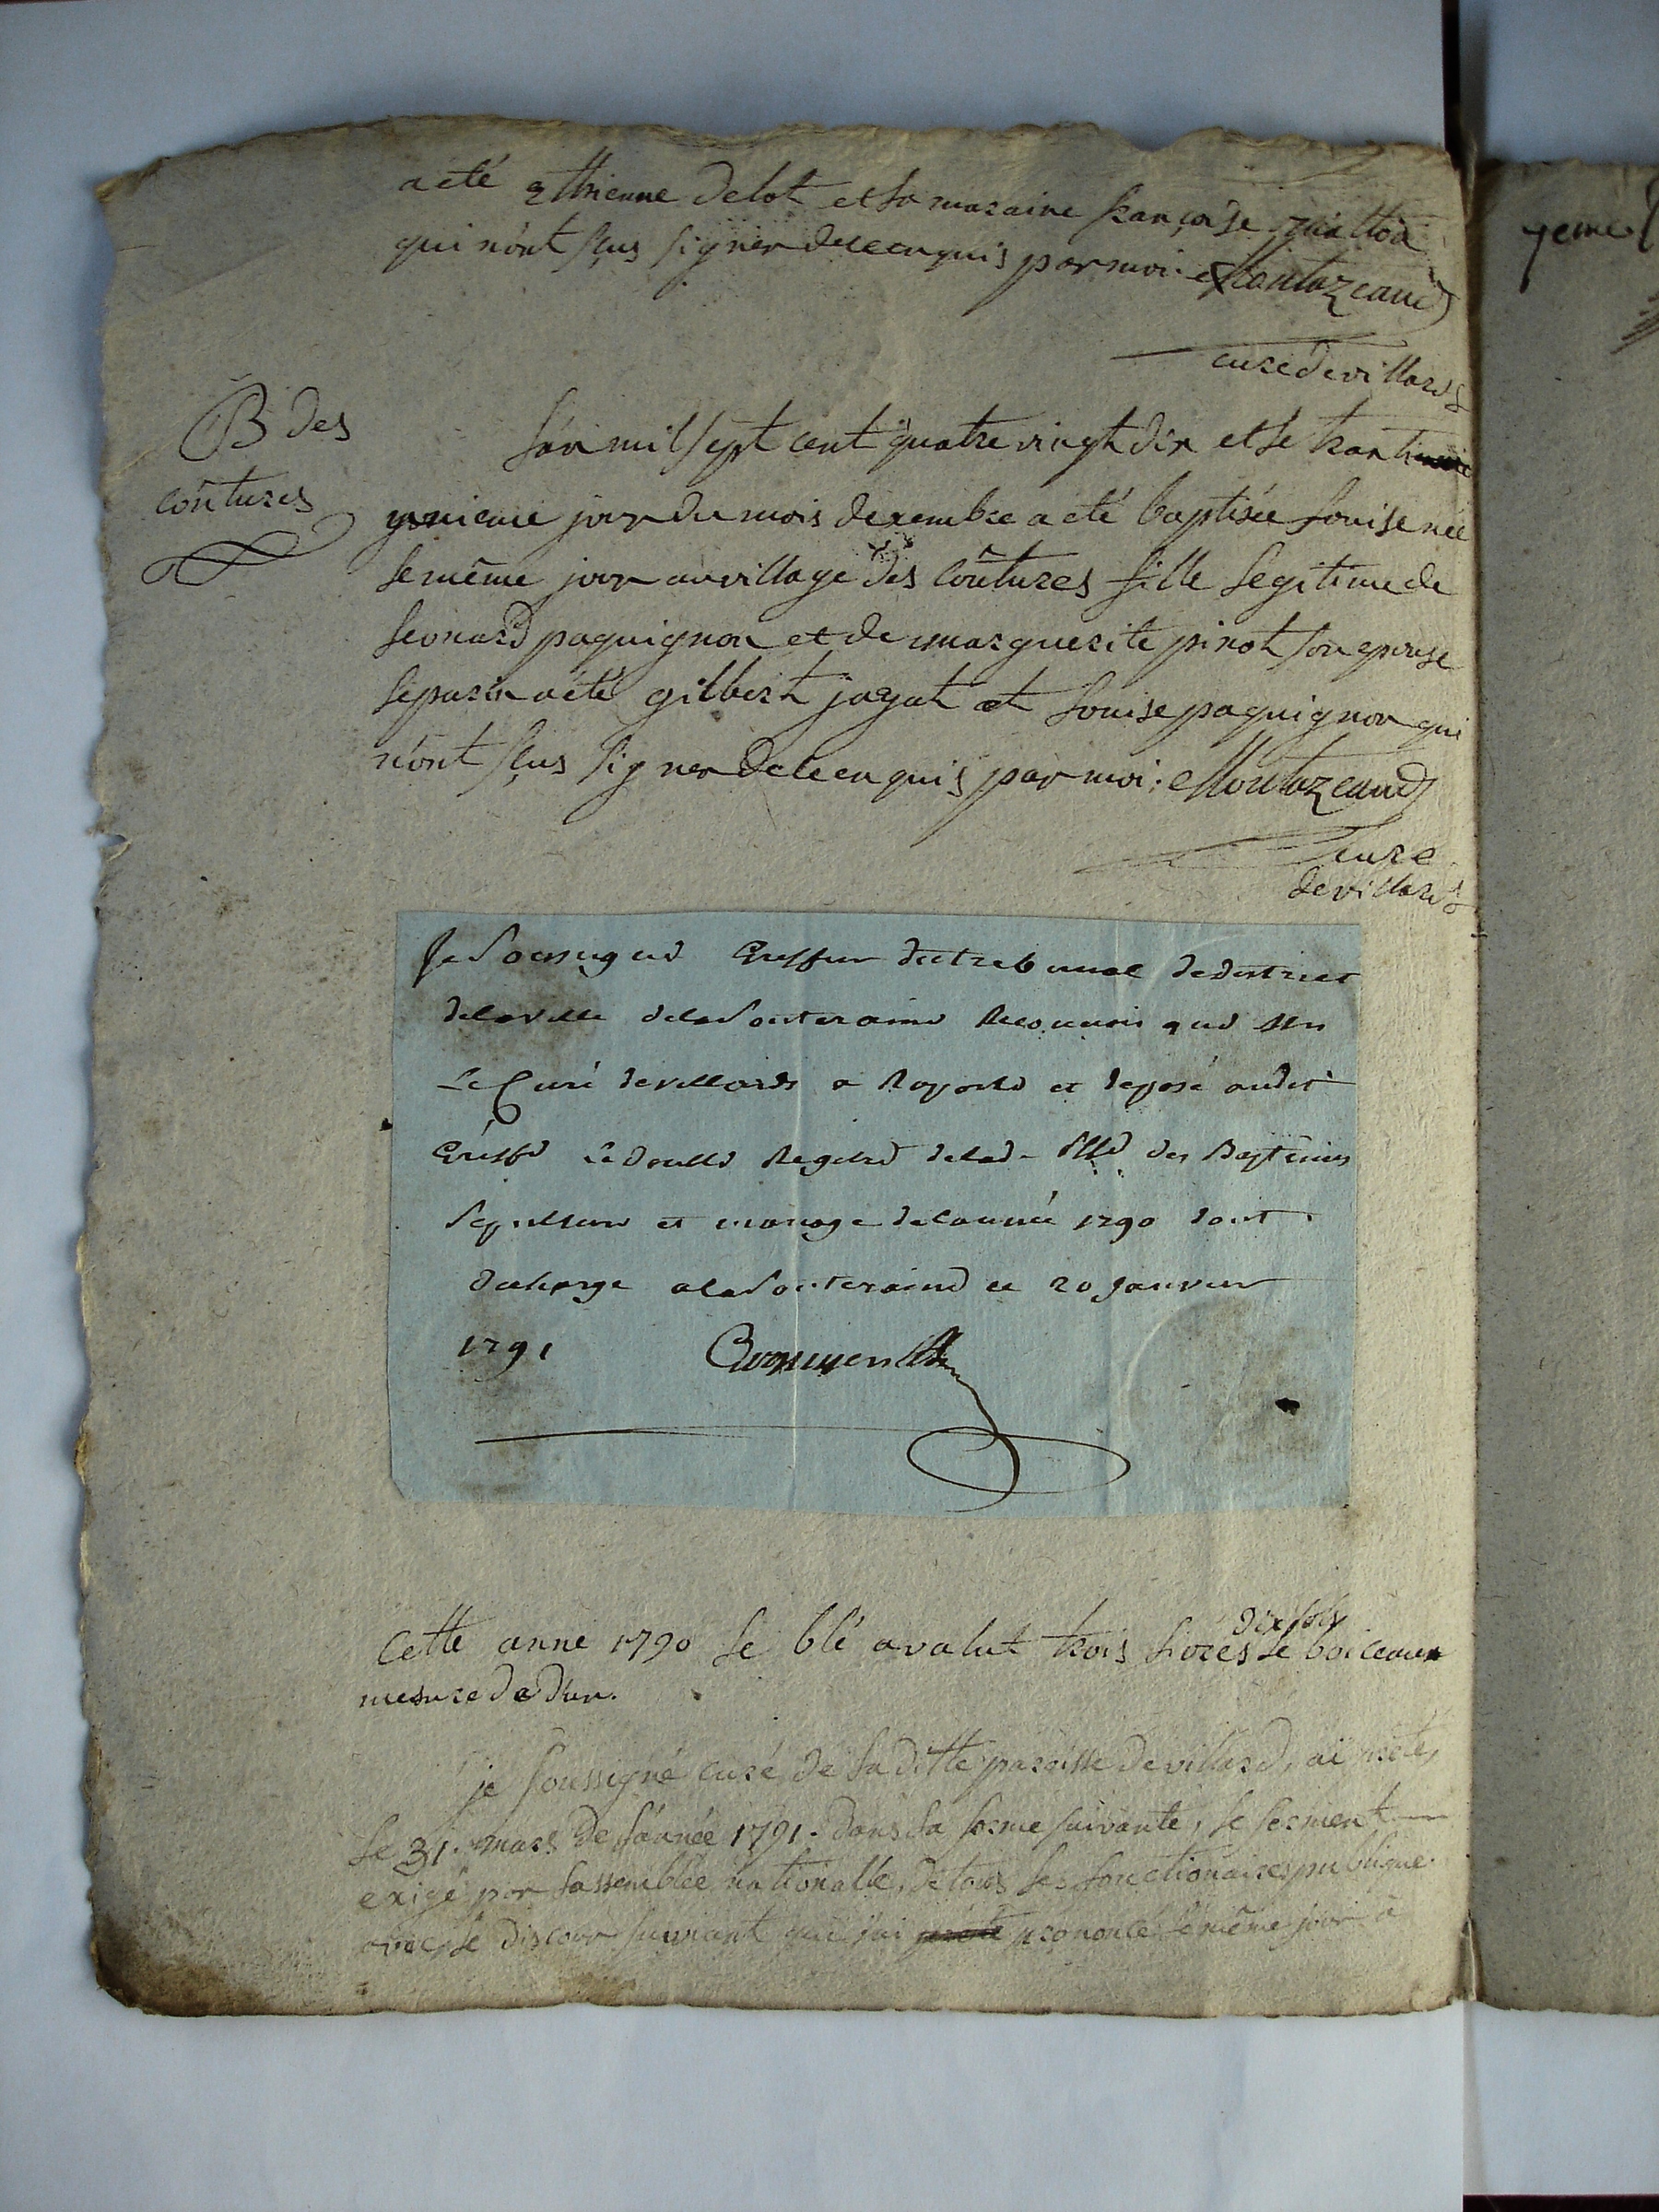 a eté Ethienne delot et la maraine françoise
qui n'ont sçus signer de ce enquis par moi. Montazeaud
curé de villards
B des
coutures
l'an mil sept cent quatre vingt dix et le tranti
unieme jour du mois dexembre a eté baptisée louise née
le même jour au village des coutures fille legitime de
leonard paquignon et de marguerite pinot son epouse
le parin a eté gilbert jagat et louise paquignon qui
n'ont sçus signer de ce enquis par moi: Montazeaud
curé
de villards
Je Soussigné Greffier du tribunal de district
de la ville de la Souteraine Reconnois que Mr
Le Curé de villards a Raporté et deposé audit
Greffe Le double Registre de lad. des Baptemes
Sepulture et mariage de l'année 1790 dont
decharge a la Souteraine ce 20 Janvier
1791
Cette anne 1790 le blé a valut trois livres dix sols le boiceaux
mesure de dun.
je soussigné curé de la ditte paroisse de villard, ai preté,
le 31. mars de l'année 1791. dans la forme suivante, le serment
exigé par l'assemblée nationalle, de tous les fonctionaires publique.
avec le discour suivant que j'ai prononcé le même jour à